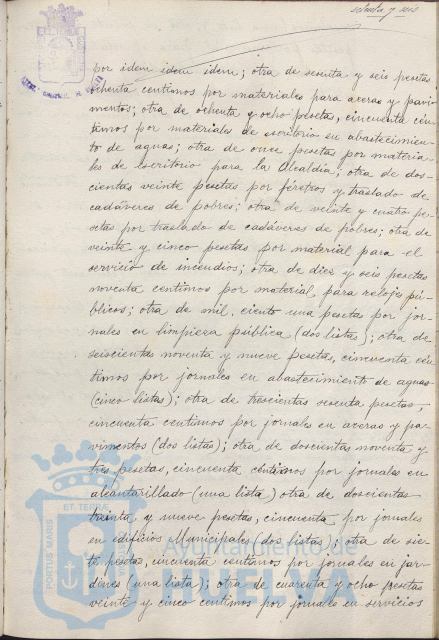 setenta y seis
por idem idem idem; otra de sesenta y seis pesetas
ochenta centimos por materiales para aceras y pavi-
mentos; otra de ochenta y ocho pesetas, cincuenta cén-
timos por materiales de escritorio en abastecimien-
to de aguas; otra de once pesetas por materia-
les de escritorio para la Alcaldia; otra de dos-
cientas veinte pesetas por féretros y traslado de
cadáveres de pobres; otra de veinte y cuatro pe-
setas por traslado de cadáveres de pobres; otra de
veinte y cinco pesetas por material para el
servicio de incendios; otra de diez y seis pesetas
noventa centimos por material para relojes pú-
blicos; otra de mil ciento una pesetas por jor-
nales en limpieza pública (dos listas); otra de
seiscientas noventa y nueve pesetas, cincuenta cén-
timos por jornales en abastecimiento de aguas
(cinco listas); otra de trescientas sesenta pesetas,
cincuenta centimos por jornales en aceras y pa-
vimentos (dos listas); otra de doscientas noventa y
tres pesetas, cincuenta centimos por jornales en
alcantarillado (una lista) otra de doscientas
treinta y nueve pesetas, cincuenta por jornales
en edificios Municipales (dos listas); otra de sie-
te pesetas, cincuenta centimos por jornales en jar-
dines (una lista); otra de cuarenta y ocho pesetas
veinte y cinco centimos por jornales en servicios
PORTUS MARIS
ET TERRAE
Ayuntamiento de
HUELVA